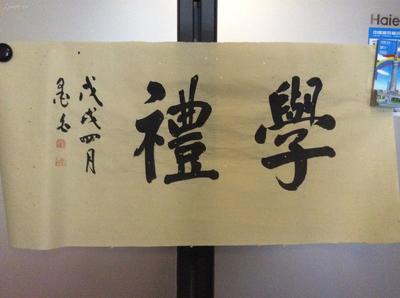 學禮
戊戌四月
Haie